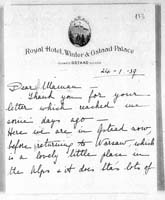 Royal Hotel, Winter & Gstaad Palace
GSTAAD
24-1-39
Dear Maman —
Thank you for your
letter which reached me
some days ago —
Here we are in Gstaad now,
before returning to Warsaw, which
is a lovely little place in
the Alps & it does Ika's lots of